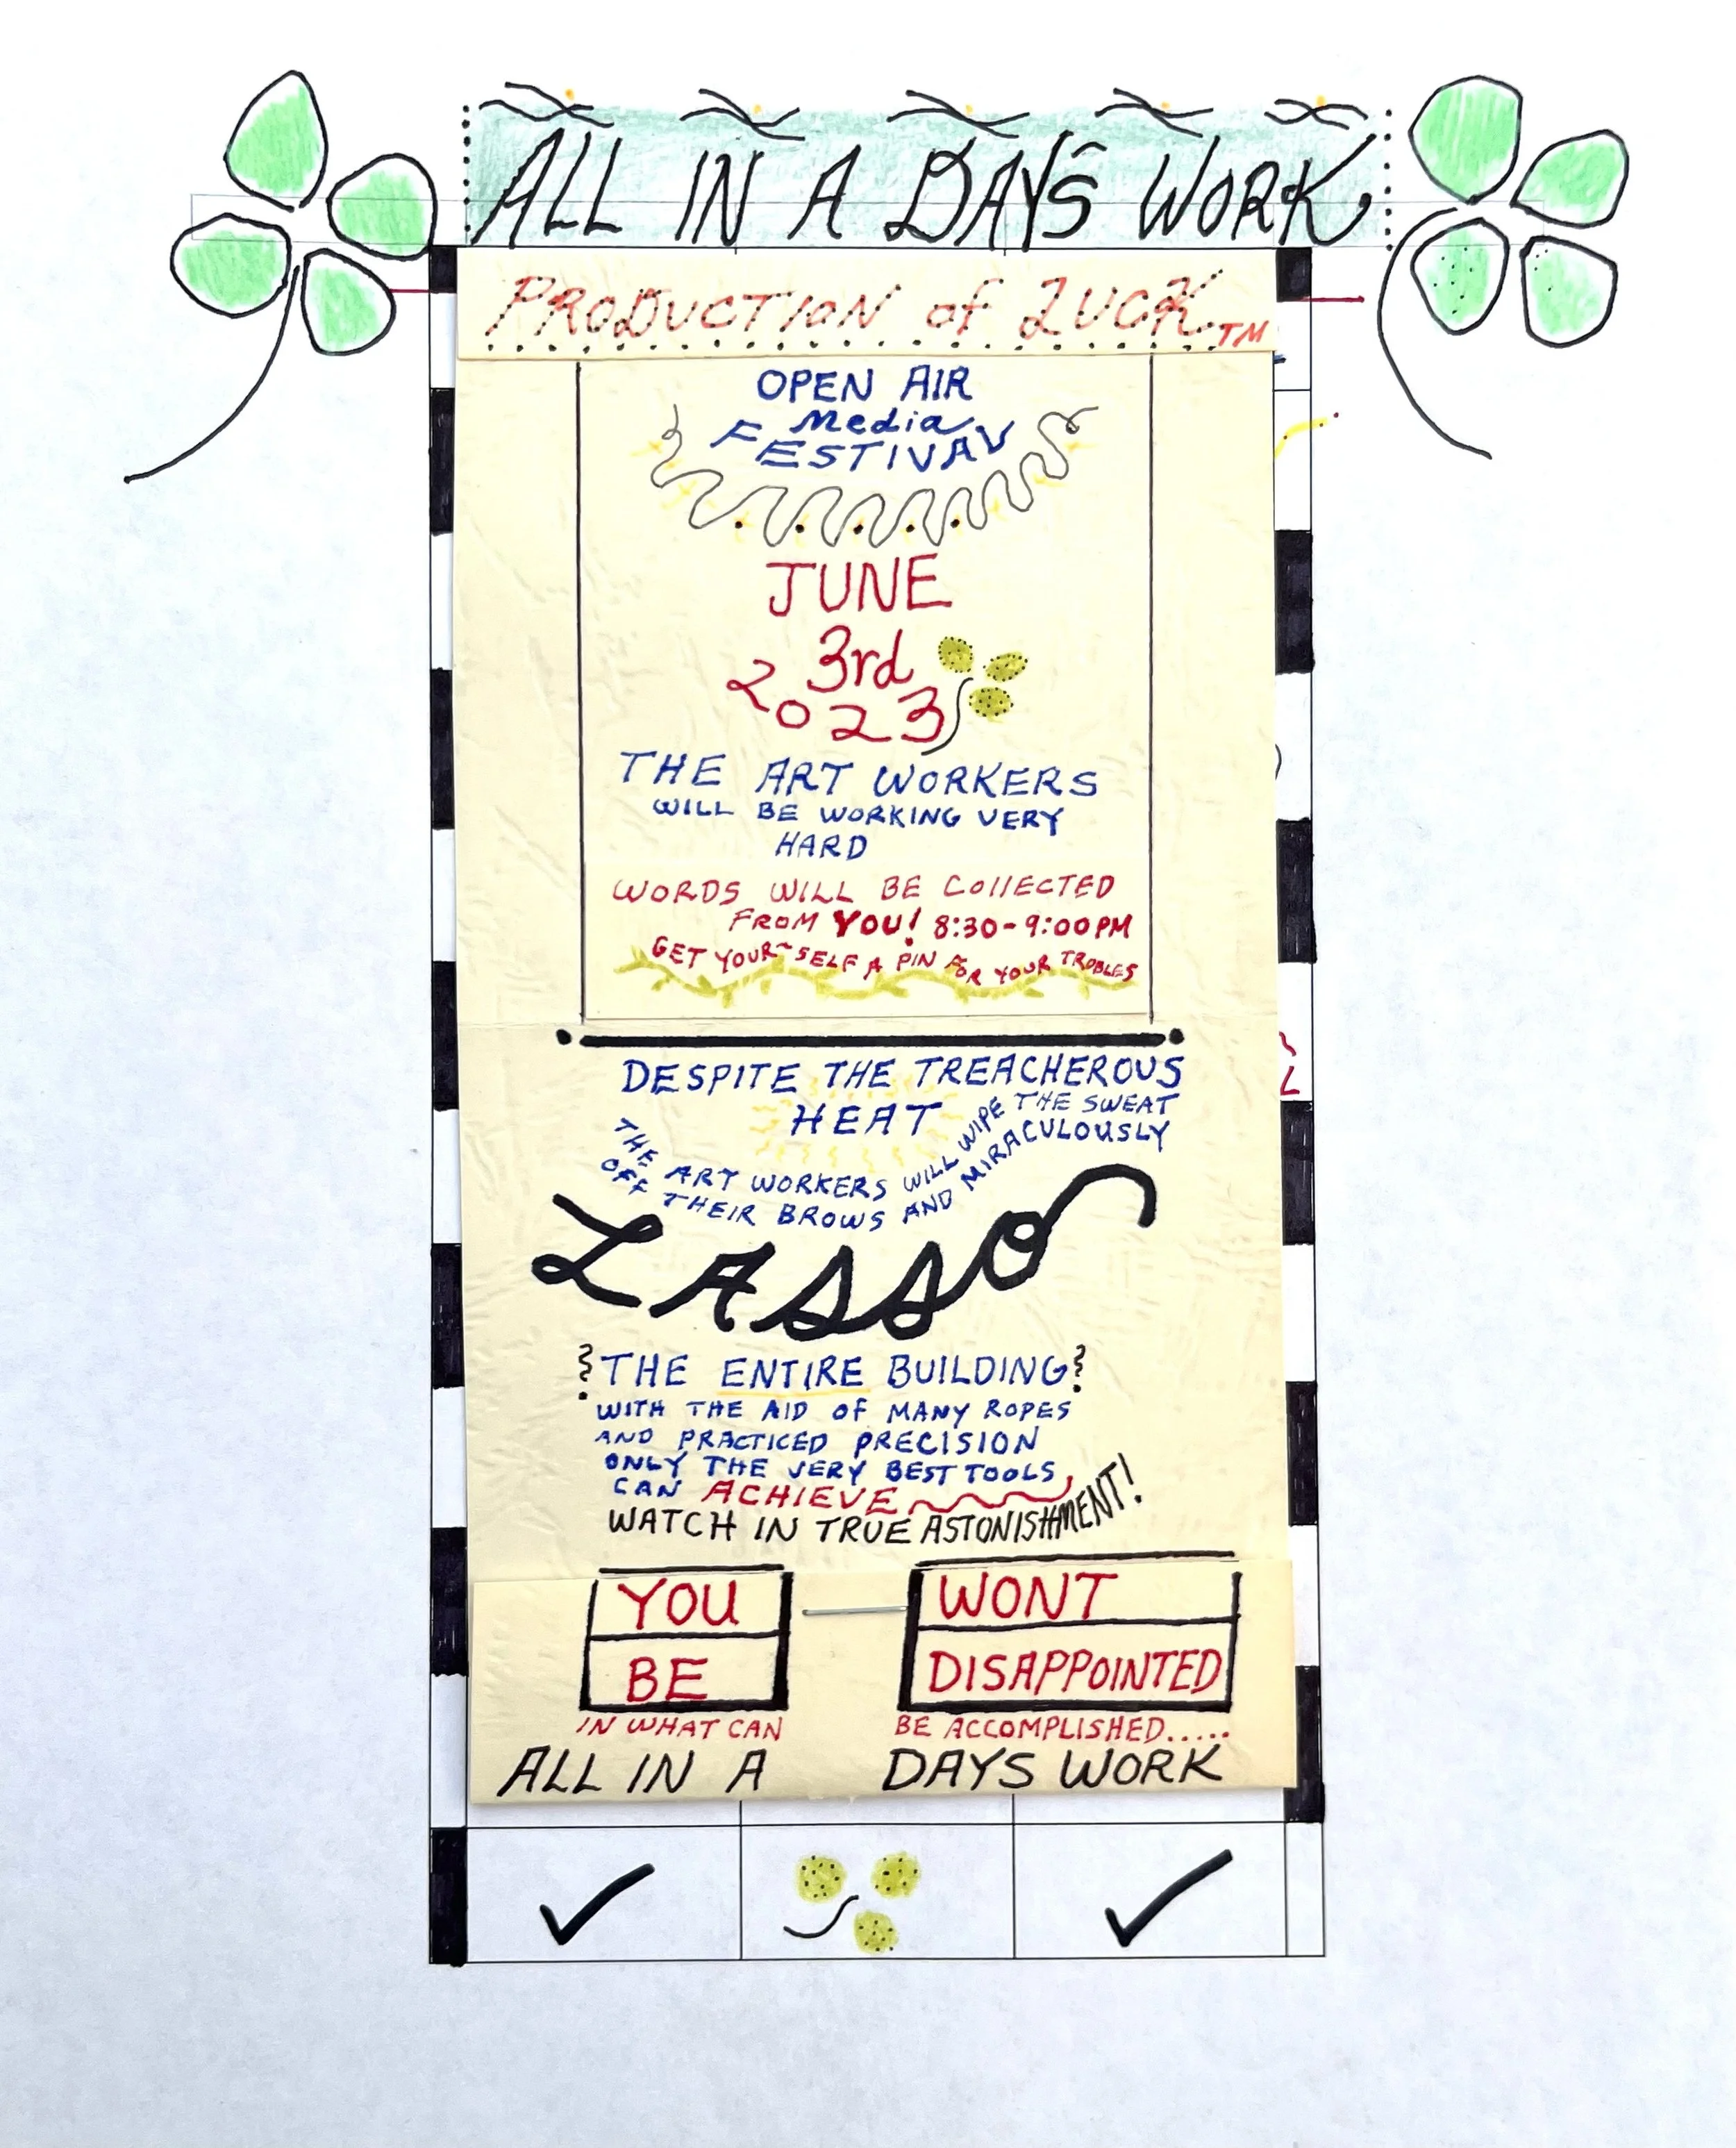 ALL IN A DAYS WORK
PRODUCTION of LUCK TM
OPEN AIR
Media
FESTIVAL
JUNE
3rd
2023
THE ART WORKERS
WILL BE WORKING VERY
HARD
WORDS WILL BE COllECTED
FROM YOU! 8:30-9:00PM
GET YOUR~SELF A PIN FOR YOUR TROBLES
DESPITE THE TREACHEROUS
HEAT
THE ART WORKERS WILL WIPE THE SWEAT
OFF THEIR BROWS AND MIRACULOUSLY
LASSO
THE ENTIRE BUILDING
WITH THE AID OF MANY ROPES
AND PRACTICED PRECISION
ONLY THE VERY BEST TOOLS
CAN ACHIEVE
WATCH IN TRUE ASTONISHMENT!
YOU WONT
BE DISAPPOINTED
IN WHAT CAN BE ACCOMPLISHED.....
ALL IN A DAYS WORK